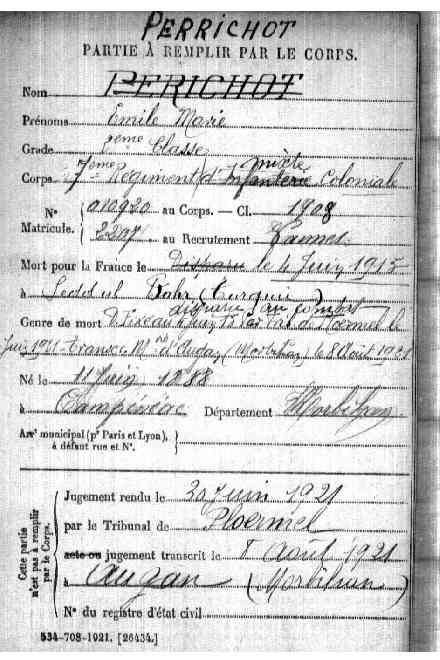 PERRICHOT
PARTIE À REMPLIR PAR LE CORPS.
Nom PERICHOT
Prénoms Emile Marie
Grade 2eme Classe
mixte
Corps 7eme Régiment d'Infanterie Coloniale
N° Matricule. a10920 au Corps. — Cl. 1908
2207 au Recrutement Vannes
Mort pour la France le Disparu le 4 Juin 1915
à Sedd ul Bahr (Turquie)
disparu au combat
Genre de mort Fixé au 4 Juin 15 par Trib. de Ploermel le
Juin 1921 Transc. M d'Augan (Morbihan) le 8 Août 1921
Né le 11 Juin 1888
à Campénéac Département Morbihan
Arrt municipal (pr Paris et Lyon),
à défaut rue et N°.
Cette partie
n'est pas à remplir
par le Corps.
Jugement rendu le 30 Juin 1921
par le Tribunal de Ploermel
acte ou jugement transcrit le 8 Août 1921
à Augan (Morbihan)
N° du registre d'état civil
534-708-1921. [26434.]